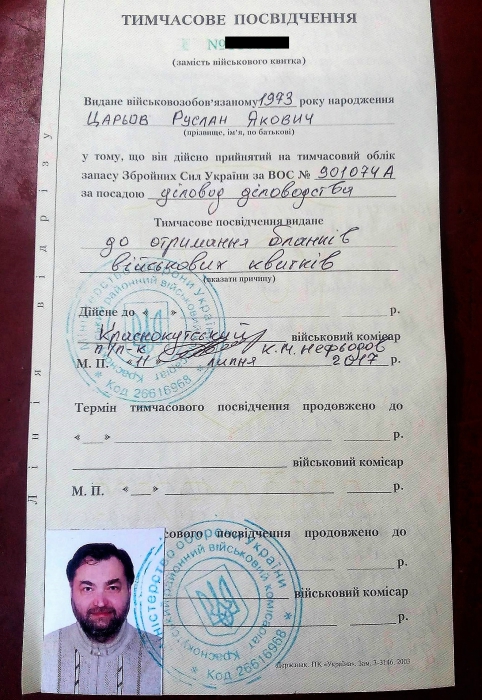 ТИМЧАСОВЕ ПОСВІДЧЕННЯ
№
(замість військового квитка)
Видане військовозобов'язаному 1973 року народження
Царьов Руслан Якович
(прізвище, ім'я, по батькові)
у тому, що він дійсно прийнятий на тимчасовий облік
запасу Збройних Сил України за ВОС № 901074А
за посадою діловод діловодства
Тимчасове посвідчення видане
до отримання бланків
військових квитків
(вказати причину)
Дійсне до « » р.
Краснокутський військовий комісар
п/п-к К.М. Нефьодов
М. П. «11» липня 2017 р.
Термін тимчасового посвідчення продовжено до
« » р.
військовий комісар
М. П. « » р.
сового посвідчення продовжено до
р.
військовий комісар
р.
Державк. ПК «Україна». Зам. 3-3146. 2003
Лінія відрізу
Міністерство оборони України
районний військовий комісаріат
* Код 26616968 *
Міністерство оборони України
Краснокутський районний військовий комісаріат
* Код 26616968 *